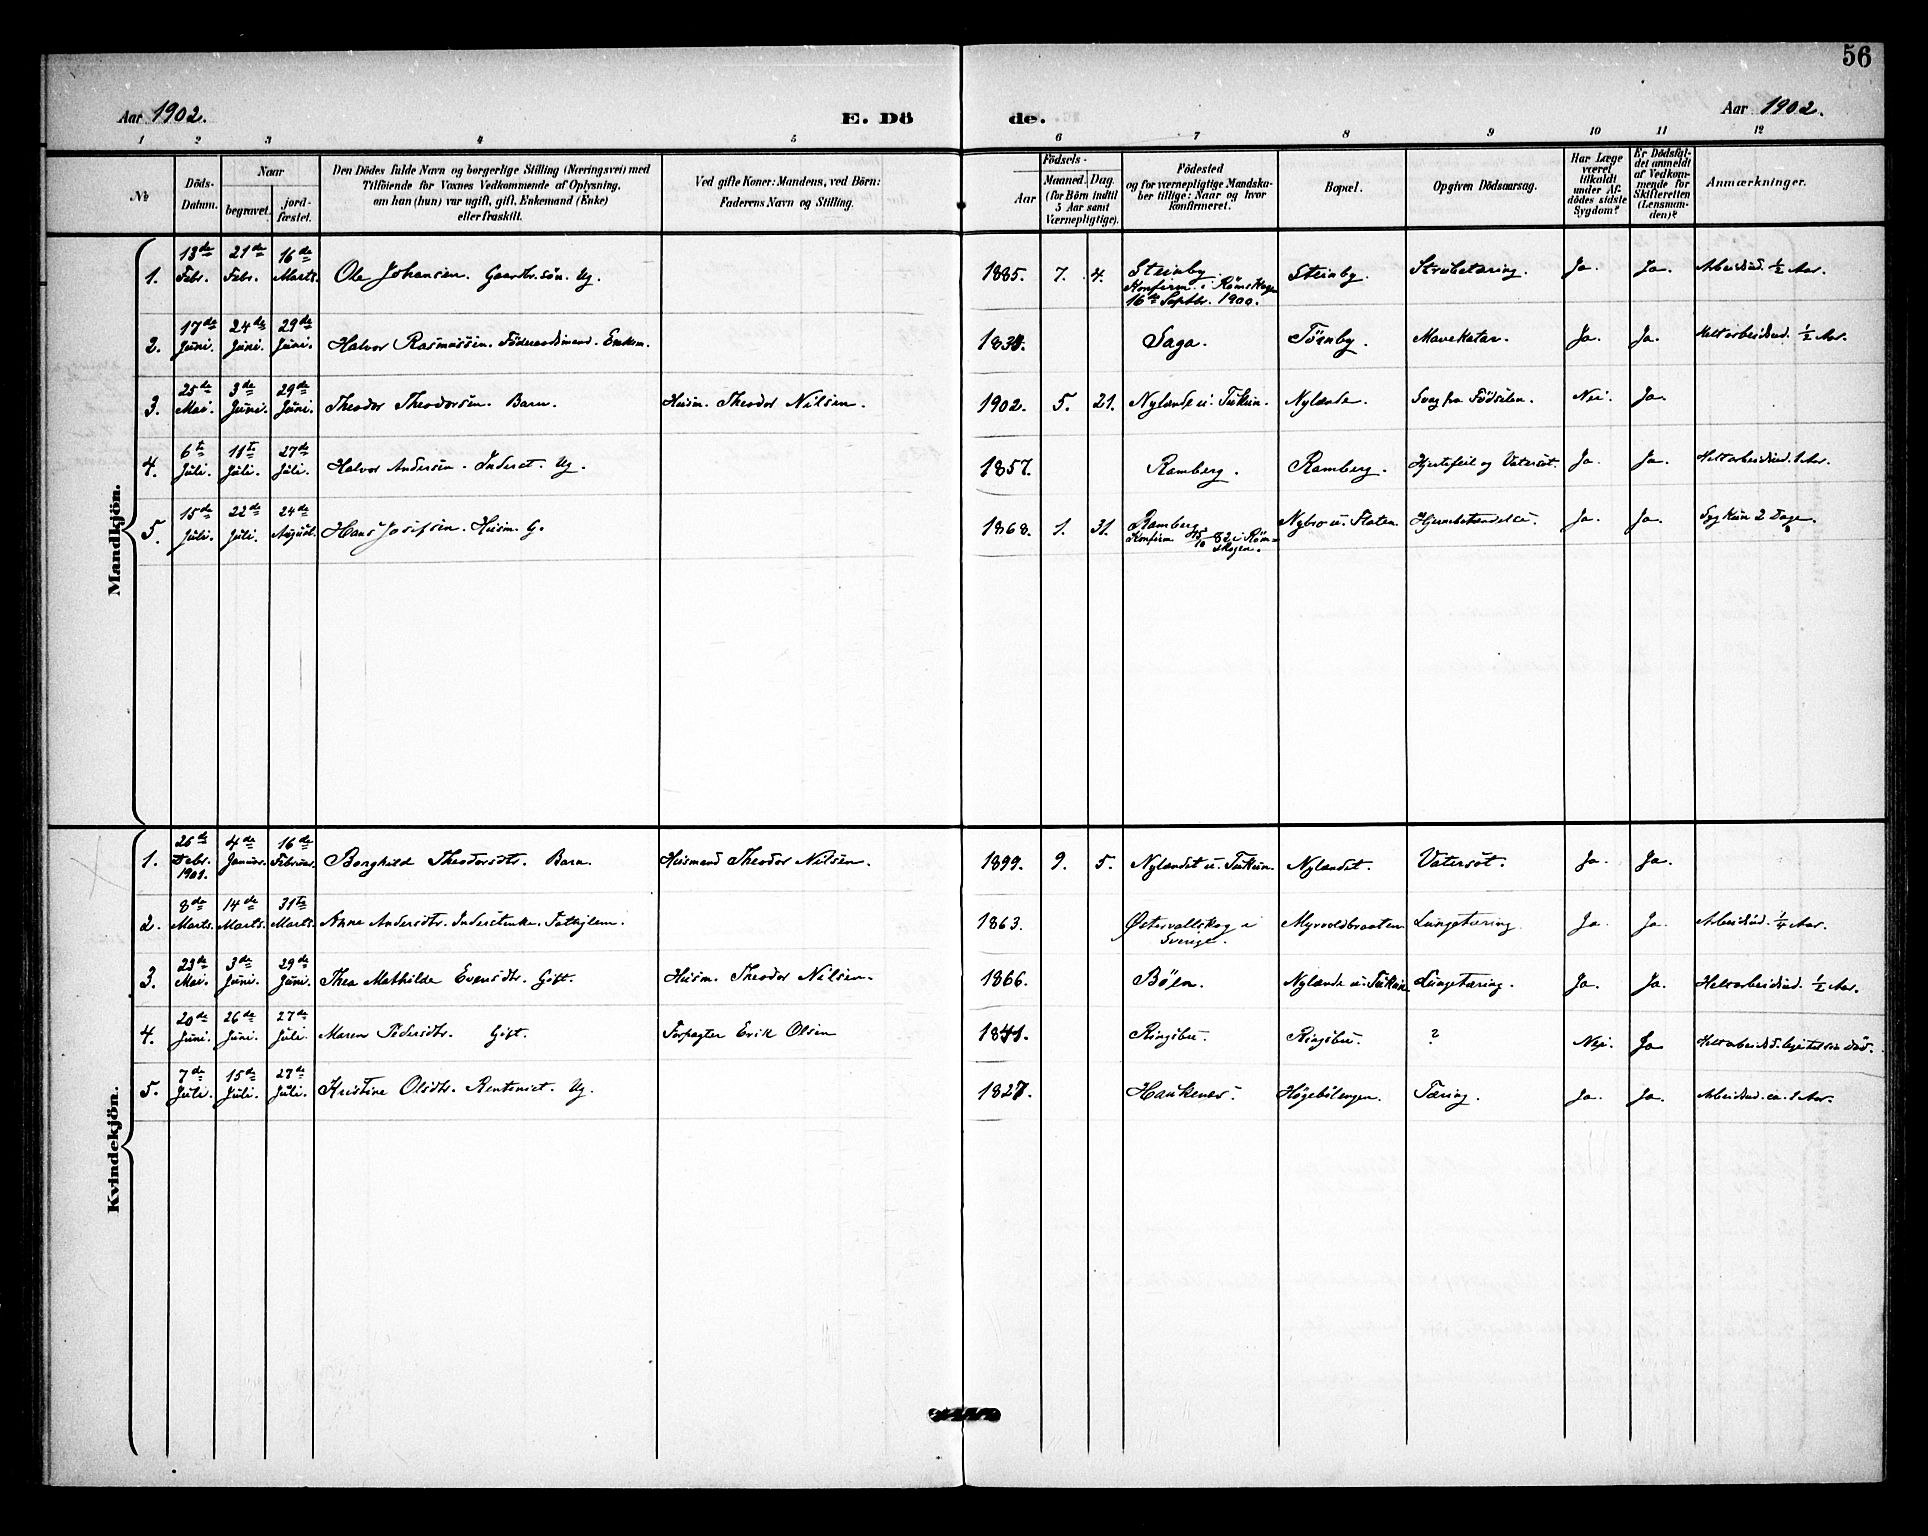 56
Aar 1902.
E. Dö
de.
Aar 1902.
1 2 3 4 5 6 7 8 9 10 11 12
№
Döds-
Datum.
Naar
begravet.
jord-
fæstet.
Den Dödes fulde Navn og borgerlige Stilling (Næringsvei) med
Tilföiende for Voxnes Vedkommende af Oplysning,
om han (hun) var ugift, gift, Enkemand (Enke)
eller fraskilt.
Ved gifte Koner: Mandens, ved Börn:
Faderens Navn og Stilling.
Födsels-
Aar
Maaned. Dag.
(for Börn indtil
5 Aar samt
Værnepligtige).
Födested
og for værnepligtige Mandska-
ber tillige: Naar og hvor
konfirmeret.
Bopæl.
Opgiven Dödsaarsag.
Har Læge
været
tilkaldt
under Af-
dödes sidste
Sygdom?
Er Dödsfal-
det anmeldt
af Vedkom-
mende for
Skifteretten
(Lensman-
den)?
Anmærkninger.
Mandkjön.
1. 13de Febr. 21de Febr. 16de Marts. Ole Johansen. Gaardbr.sön. Ug. 1885. 7. 4. Steinby. Steinby. Strubetæring. Ja. Ja. Arbeidsud. ½ Aar.
Konfirm. i Römskogen
16de Septbr. 1900.
2. 17de Juni. 24de Juni. 29de Juni. Halvor Rasmussen. Föderaadsmand. Enkem. Saga. Törnby. Mavekatar. Ja. Ja. Helt arbeidsud. ½ Aar.
3. 25de Mai. 3de Juni. 29de Juni. Theodor Theodorsen. Barn. Husm. Theodor Nilsen. 1902. 5. 21. Nylande u. Tukun. Nylande. Svag fra Födselen. Nei. Ja.
4. 6te Juli. 11te Juli. 27de Juli. Halvor Andersen. Inderst. Ug. 1857. Ramberg. Ramberg. Hjertefeil og Vatersot. Ja. Ja. Helt arbeidsud. 1 Aar.
5. 15de Juli. 22de Juli. 24de August. Hans Josefsen. Husm. G. 1868. 1. 31. Ramberg. Nybro u. Flaten. Hjernebetændelse. Ja. Ja. Syg kun 2 Dage.
Konfirm 15/10 82 i Röm-
skogen.
Kvindekjön.
1. 26de Debr. 1901. 4de Januar. 16de Februar. Borghild Theodorsdtr. Barn. Husmand Theodor Nilsen. 1899. 9. 5. Nylandet u. Tukun. Nylandet. Vatersot. Ja. Ja.
2. 8de Marts. 14de Marts. 31te Marts. Anne Andersdtr. Inderstenke. Fattiglem. 1863. Østervallskog i Myrvoldbraaten. Lungetæring. Ja. Ja. Arbeidsud. ¼ Aar.
Sverige.
3. 23de Mai. 3de Juni. 29de Juni. Thea Mathilde Evensdtr. Gift. Husm. Theodor Nilsen. 1866. Böen. Nylande u. Tukun. Lungetæring. Ja. Ja. Helt arbeidsud. ½ Aar.
4. 20de Juni. 26de Juni. 27de Juli. Maren Pedersdtr. Gift. Forpagter Erik Olsen 1841. Ringsbu. Ringsbu. ? Nei. Ja Helt arbeidsud.
5. 7de Juli. 15de Juli. 27de Juli. Kristine Olsdtr. Rentenist. Ug. 1827. Haukenes. Högebölengen. Tæring. Ja. Ja. Arbeidsud. ca. 1 Aar.